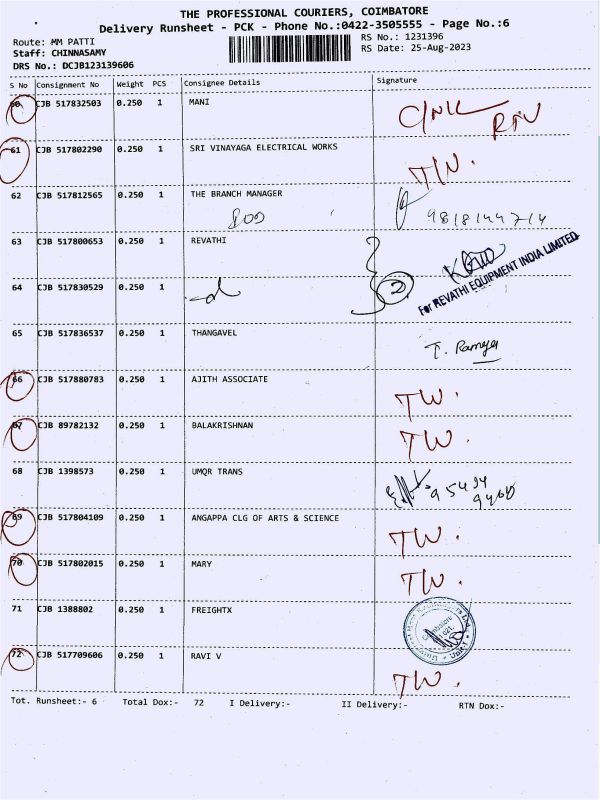 THE PROFESSIONAL COURIERS, COIMBATORE
Delivery Runsheet - PCK - Phone No.:0422-3505555 - Page No.:6
Route: MM PATTI
RS No.: 1231396
Staff: CHINNASAMY
RS Date: 25-Aug-2023
DRS No.: DCJB123139606
S No Consignment No Weight PCS Consignee Details Signature
60 CJB 517832503 0.250 1 MANI
RTN
61 CJB 517802290 0.250 1 SRI VINAYAGA ELECTRICAL WORKS
TW.
62 CJB 517812565 0.250 1 THE BRANCH MANAGER
63 CJB 517800653 0.250 1 REVATHI
2
For REVATHI EQUIPMENT INDIA LIMITED
64 CJB 517830529 0.250 1
65 CJB 517836537 0.250 1 THANGAVEL
T. Ramya
66 CJB 517880783 0.250 1 AJITH ASSOCIATE
TW.
67 CJB 89782132 0.250 1 BALAKRISHNAN
TW.
68 CJB 1398573 0.250 1 UMQR TRANS
69 CJB 517804109 0.250 1 ANGAPPA CLG OF ARTS & SCIENCE
TW.
70 CJB 517802015 0.250 1 MARY
TW.
71 CJB 1388802 0.250 1 FREIGHTX
72 CJB 517709606 0.250 1 RAVI V
TW.
Tot. Runsheet:- 6 Total Dox:- 72 I Delivery:- II Delivery:- RTN Dox:-